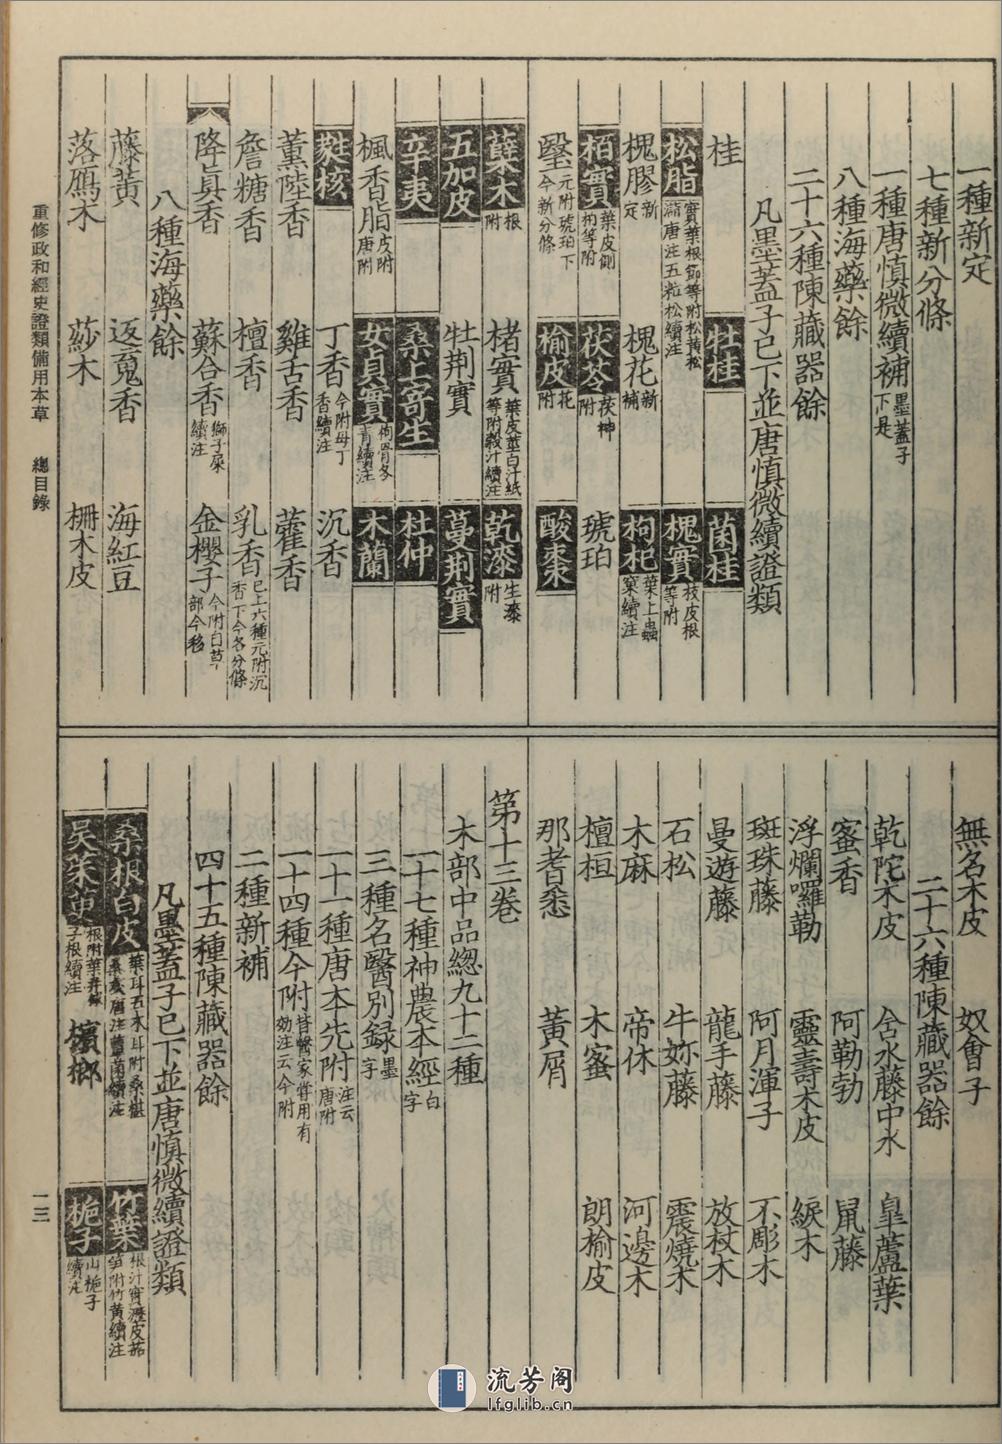 一種新定
七種新分條
一種唐慎微續補墨蓋子下是
八種海藥餘
二十六種陳藏器餘
凡墨蓋子已下並唐慎微續證類
桂 牡桂 菌桂
松脂實葉根節等附松黃松瀝唐注五粒松續注 槐實枝皮根等附
槐膠新定 槐花新補 枸杞葉上蟲窠續注
栢實葉皮側枘等附 茯苓茯神附 琥珀
瑿元附琥珀下今新分條 榆皮花附 酸棗
蘗木根附 楮實葉皮莖白汁紙等附榖汁續注 乾漆生漆附
五加皮 牡荆實 蔓荆實
辛夷 桑上寄生 杜仲
楓香脂皮附唐附 女貞實枸骨冬青續注 木蘭
蕤核 丁香今附母丁香續注 沉香
薰陸香 雞舌香 藿香
詹糖香 檀香 乳香已上六種元附沉香下今各分條
降眞香 蘇合香獅子屎續注 金櫻子今附自草部今移
八種海藥餘
藤黃 返䰟香 海紅豆
落鴈木 莎木 柵木皮
無名木皮 奴會子
二十六種陳藏器餘
乾陀木皮 含水藤中水 皐蘆葉
蜜香 阿勒勃 鼠藤
浮爛囉勒 靈壽木皮 綟木
斑珠藤 阿月渾子 不彫木
曼遊藤 龍手藤 放杖木
石松 牛妳藤 震燒木
木麻 帝休 河邊木
檀桓 木蜜 朗榆皮
那耆悉 黃屑
第十三卷
木部中品總九十二種
一十七種神農本經白字
三種名醫別録墨字
一十一種唐本先附注云唐附
一十四種今附皆醫家嘗用有効注云今附
二種新補
四十五種陳藏器餘
凡墨蓋子已下並唐慎微續證類
桑根白皮葉耳五木耳附桑椹 竹葉根汁實瀝皮茹笋附竹黃續注
吳茱萸根附葉子根續注 檳榔 梔子山梔子續注
重修政和經史證類備用本草 總目錄
一三
流芳阁
lfglib.cn